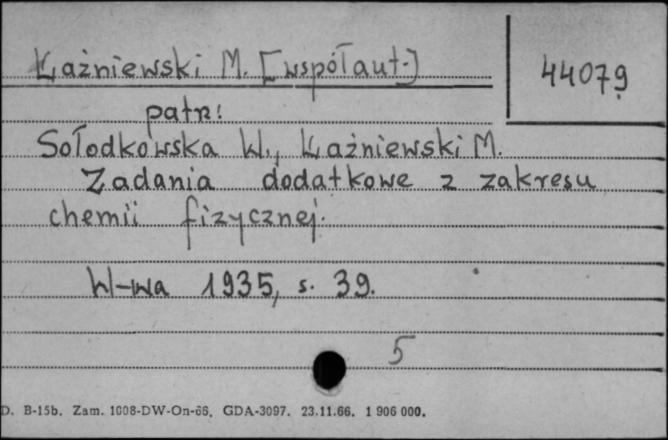 Łaźniewski M. [współaut.]
44079
patrz:
Sołodkowska W., Łaźniewski M.
Zadania dodatkowe z zakresu
chemii fizycznej.
W-wa 1935, s. 39.
5
D. B-15b. Zam. 1008-DW-On-66. GDA-3097. 23.11.66. 1 906 000.